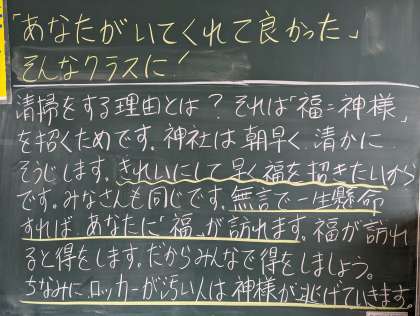 「あなたがいてくれて良かった」
そんなクラスに!
清掃をする理由とは?それは「福=神様」
を招くためです。神社は朝早く清かに
そうじします。きれいにして早く福を招きたいから
です。みなさんも同じです。無言で一生懸命
すれば、あなたに「福」が訪れます。福が訪れ
ると得をします。だからみんなで得をしましょう。
ちなみに、ロッカーが汚い人は神様が逃げていきます。